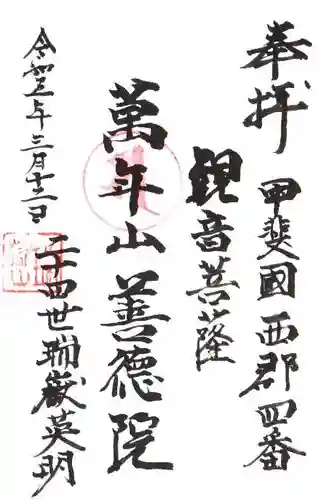 奉拝
甲斐國西郡四番
観音菩薩
萬年山善德院
令和五年三月十三日
二十四世瑞嶽英明